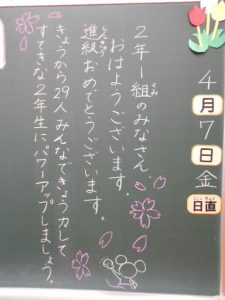 4月7日金
日直
2年1組のみなさん、
おはようございます。
進級おめでとうございます。
きょうから29人みんなできょう力して、
すてきな2年生にパワーアップしましょう。